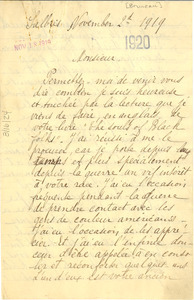 Salbris Novembre 2d 1919
1920
Monsieur.
Permettez-moi de venir vous
dire combien je suis heureuse
et touchée par la lecture que je
viens de faire, en anglais, de
votre livre "The Souls of Black
folks". J'ai réussi à me le
procurer car je porte depuis
longtemps et plus spécialement
depuis la guerre un vif intérêt
à votre race. J'ai eu l'occasion
fréquente pendant la guerre
de prendre contact avec les
gens de couleur américains.
J'ai eu l'occasion de les appré-
cier. Et j'ai eu l'infinie dou-
ceur d'être appelée à en conso-
ler et réconforter quelques uns